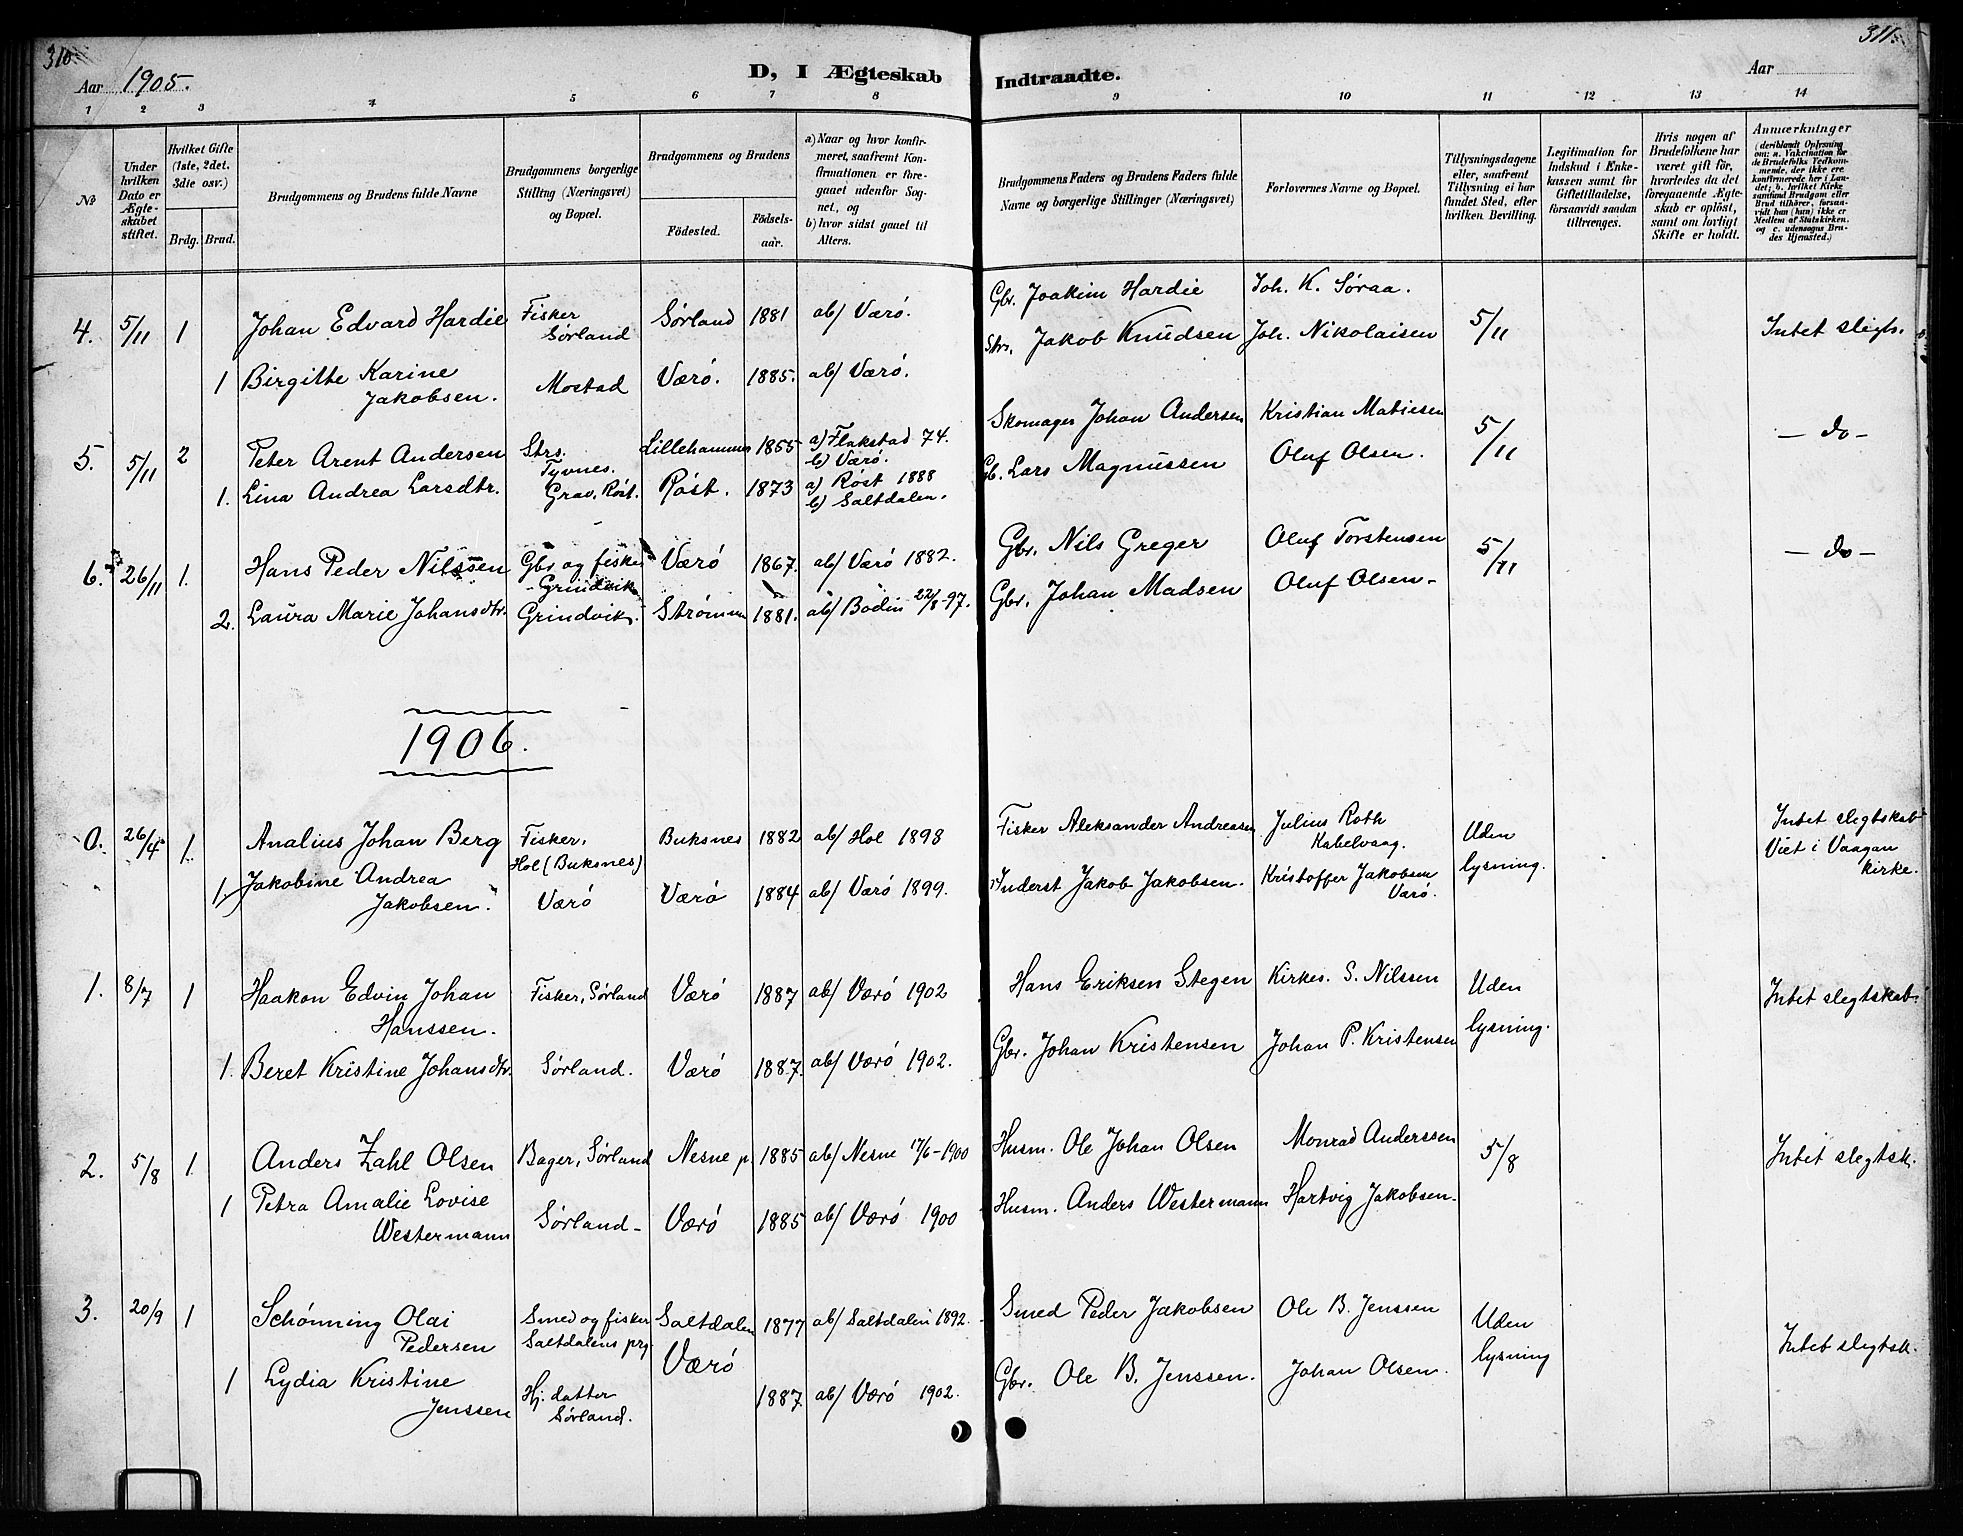 310.
311.
Aar 1905.
D, I Ægteskab
Indtraadte.
Aar
1 2 3 4 5 6 7 8 9 10 11 12 13 14
No
Under hvilken Dato er Ægteskabet stiftet.
Hvilket Gifte (1ste, 2det. 3die osv.)
Brdg. Brud.
Brudgommens og Brudens fulde Navne
Brudgommens borgerlige Stilling (Næringsvei) og Bopæl.
Brudgommens og Brudens
Födested.
Födselsaar.
a) Naar og hvor konfirmeret, saafremt Konfirmationen er foregaaet udenfor Sognet, og
b) hvor sidst gaaet til Alters.
Brudgommens Faders og Brudens Faders fulde Navne og borgerlige Stillinger (Næringsvei)
Forlovernes Navne og Bopæl.
Tillysningsdagene eller, saafremt Tillysning ei har fundet Sted, efter hvilken Bevilling.
Legitimation for Indskud i Enkekassen samt for Giftetilladelse, forsaavidt saadan tiltrænges.
Hvis nogen af Brudefolkene har været gift för, hvorledes da det foregaaende Ægteskab er oplöst, samt om lovligt Skifte er holdt.
Anmærkninger (deriblandt Oplysning om: a. Vakcination for de Brudefolks Vedkommende, der ikke ere konfirmerede her i Landet; b. hvilket Kirkesamfund Brudgom eller Brud tilhörer, forsaavidt han (hun) ikke er Medlem af Statskirken. og c. udensogns Brudes Hjemsted.)
4. 5/11 1 Johan Edvard Hardie Fisker Sørland Sørland 1881 ab/ Værö. Gbr. Joakim Hardie Joh. K. Søraa. 5/11 Intet slegts.
Strs. Jakob Knudsen Joh. Nikolaisen
1 Birgitte Karine Jakobsen. Mostad Værö. 1885. ab/ Værö.
5. 5/11 2 Peter Arent Andersen Strs. Tyvnes. Lillehammer 1855 a) Flakstad 74. b) Værö. Skomager Johan Andersen Kristian Matiesen 5/11 — do —
1. Lina Andrea Larsdtr. Grav, Röst. Röst. 1873 a) Röst 1888 b) Saltdalen. Gb. Lars Magnussen Oluf Olsen.
6. 26/11 1. Hans Peder Nilssen Gbr og fisker Grindvik Værö 1867. ab/ Værö 1882. Gbr. Nils Greger Oluf Torstensen 5/11 — do —
2. Laura Marie Johansdtr. Grindvik. Strömm 1881. ab/ Bodin 22/8-97. Gbr. Johan Madsen Oluf Olsen-
1906.
0. 26/4 1. Analius Johan Berg Fisker. Hol (Buksnes) Buksnes 1882 ab/ Hol 1898 Fisker Aleksander Andreasen Julius Roth Kabelvaag. Uden lysning. Intet slegtskab Viet i Vaagan kirke.
1, Jakobine Andrea Jakobsen. Værö Værö 1884 ab/ Værö 1899. Inderst Jakob Jakobsen. Kristoffer Jakobsen Værö.
1. 8/7 1 Haakon Edvin Johan Hanssen. Fisker, Sørland Værö 1887 ab/ Værö 1902 Hans Eriksen Stegen Kirkes. S. Nilssen Uden lysning. Intet slegtskab.
1. Beret Kristine Johansdtr. Sørland. Værö 1887. ab/ Værö 1902. Gbr. Johan Kristensen Johan P. Kristensen
2. 5/8 1. Anders Zahl Olsen Bager, Sørland Nesne p. 1885 ab/ Nesne 17/6-1900 Husm. Ole Johan Olsen Monrad Anderssen 5/8 Intet slegtsk.
1 Petra Amalie Lovise Westermann Sørland- Værö 1885 ab/ Værö 1900 Husm. Anders Westermann Hartvig Jakobsen.
3. 20/9 1 Schönning Olai Pedersen Smed og fisker Saltdalens prg. Saltdalen 1877 ab/ Saltdalen 1892. Smed Peder Jakobsen Ole B. Jenssen Uden lysning Intet slegtsk.
1 Lydia Kristine Jenssen Hj. datter Sørland. Værö 1887 ab/ Værö 1902. Gbr. Ole B. Jenssen. Johan Olsen.